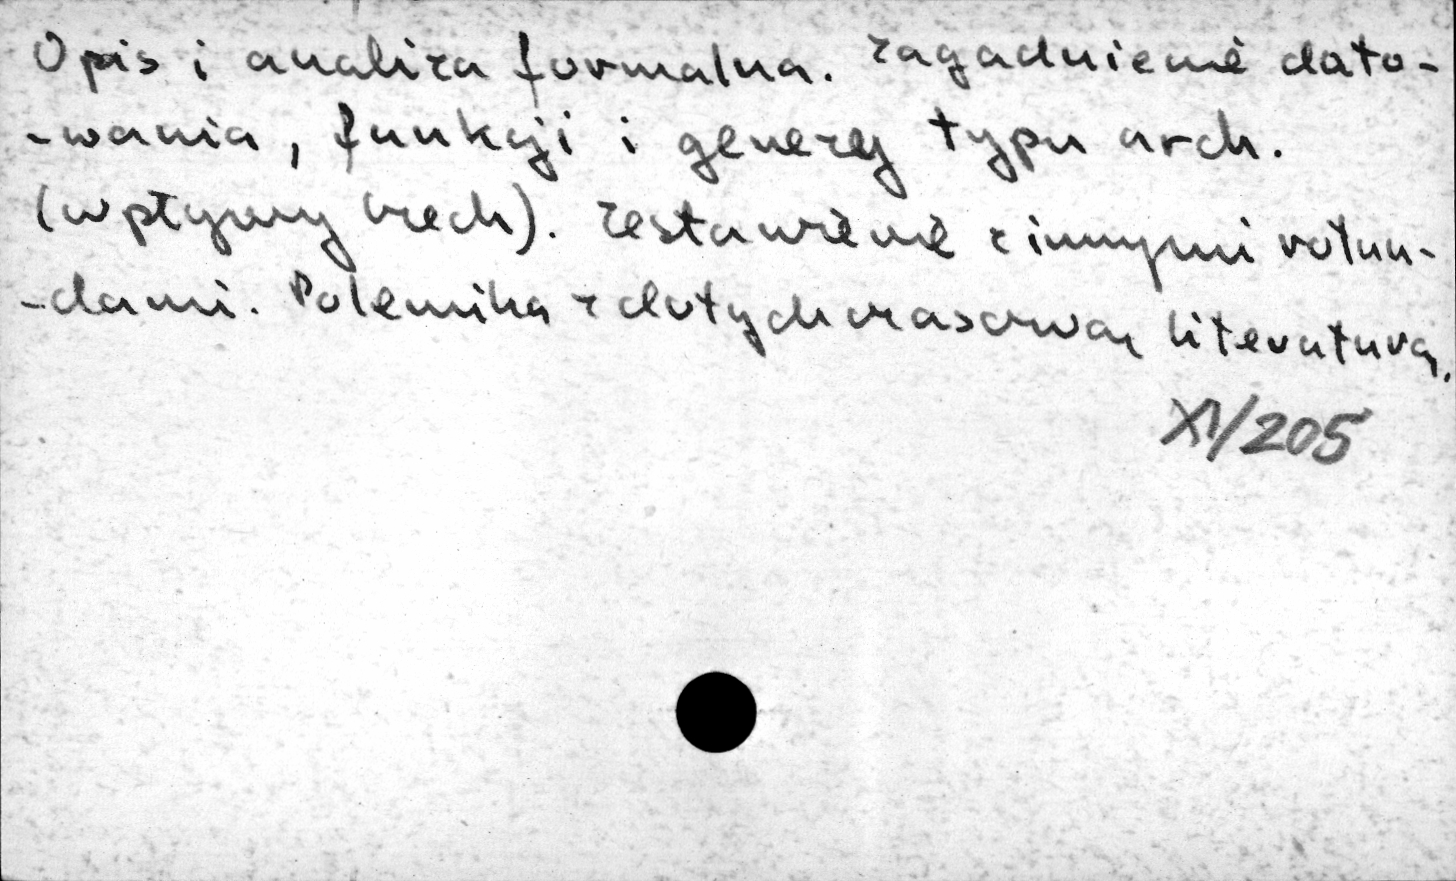 Opis i analiza formalna. Zagadnienie dato-
-wania, funkcji i genezy typu arch.
(wpływy czech). Zestawienie z innymi rotun-
-dami. Polemika z dotychczasową literaturą.
XI/205